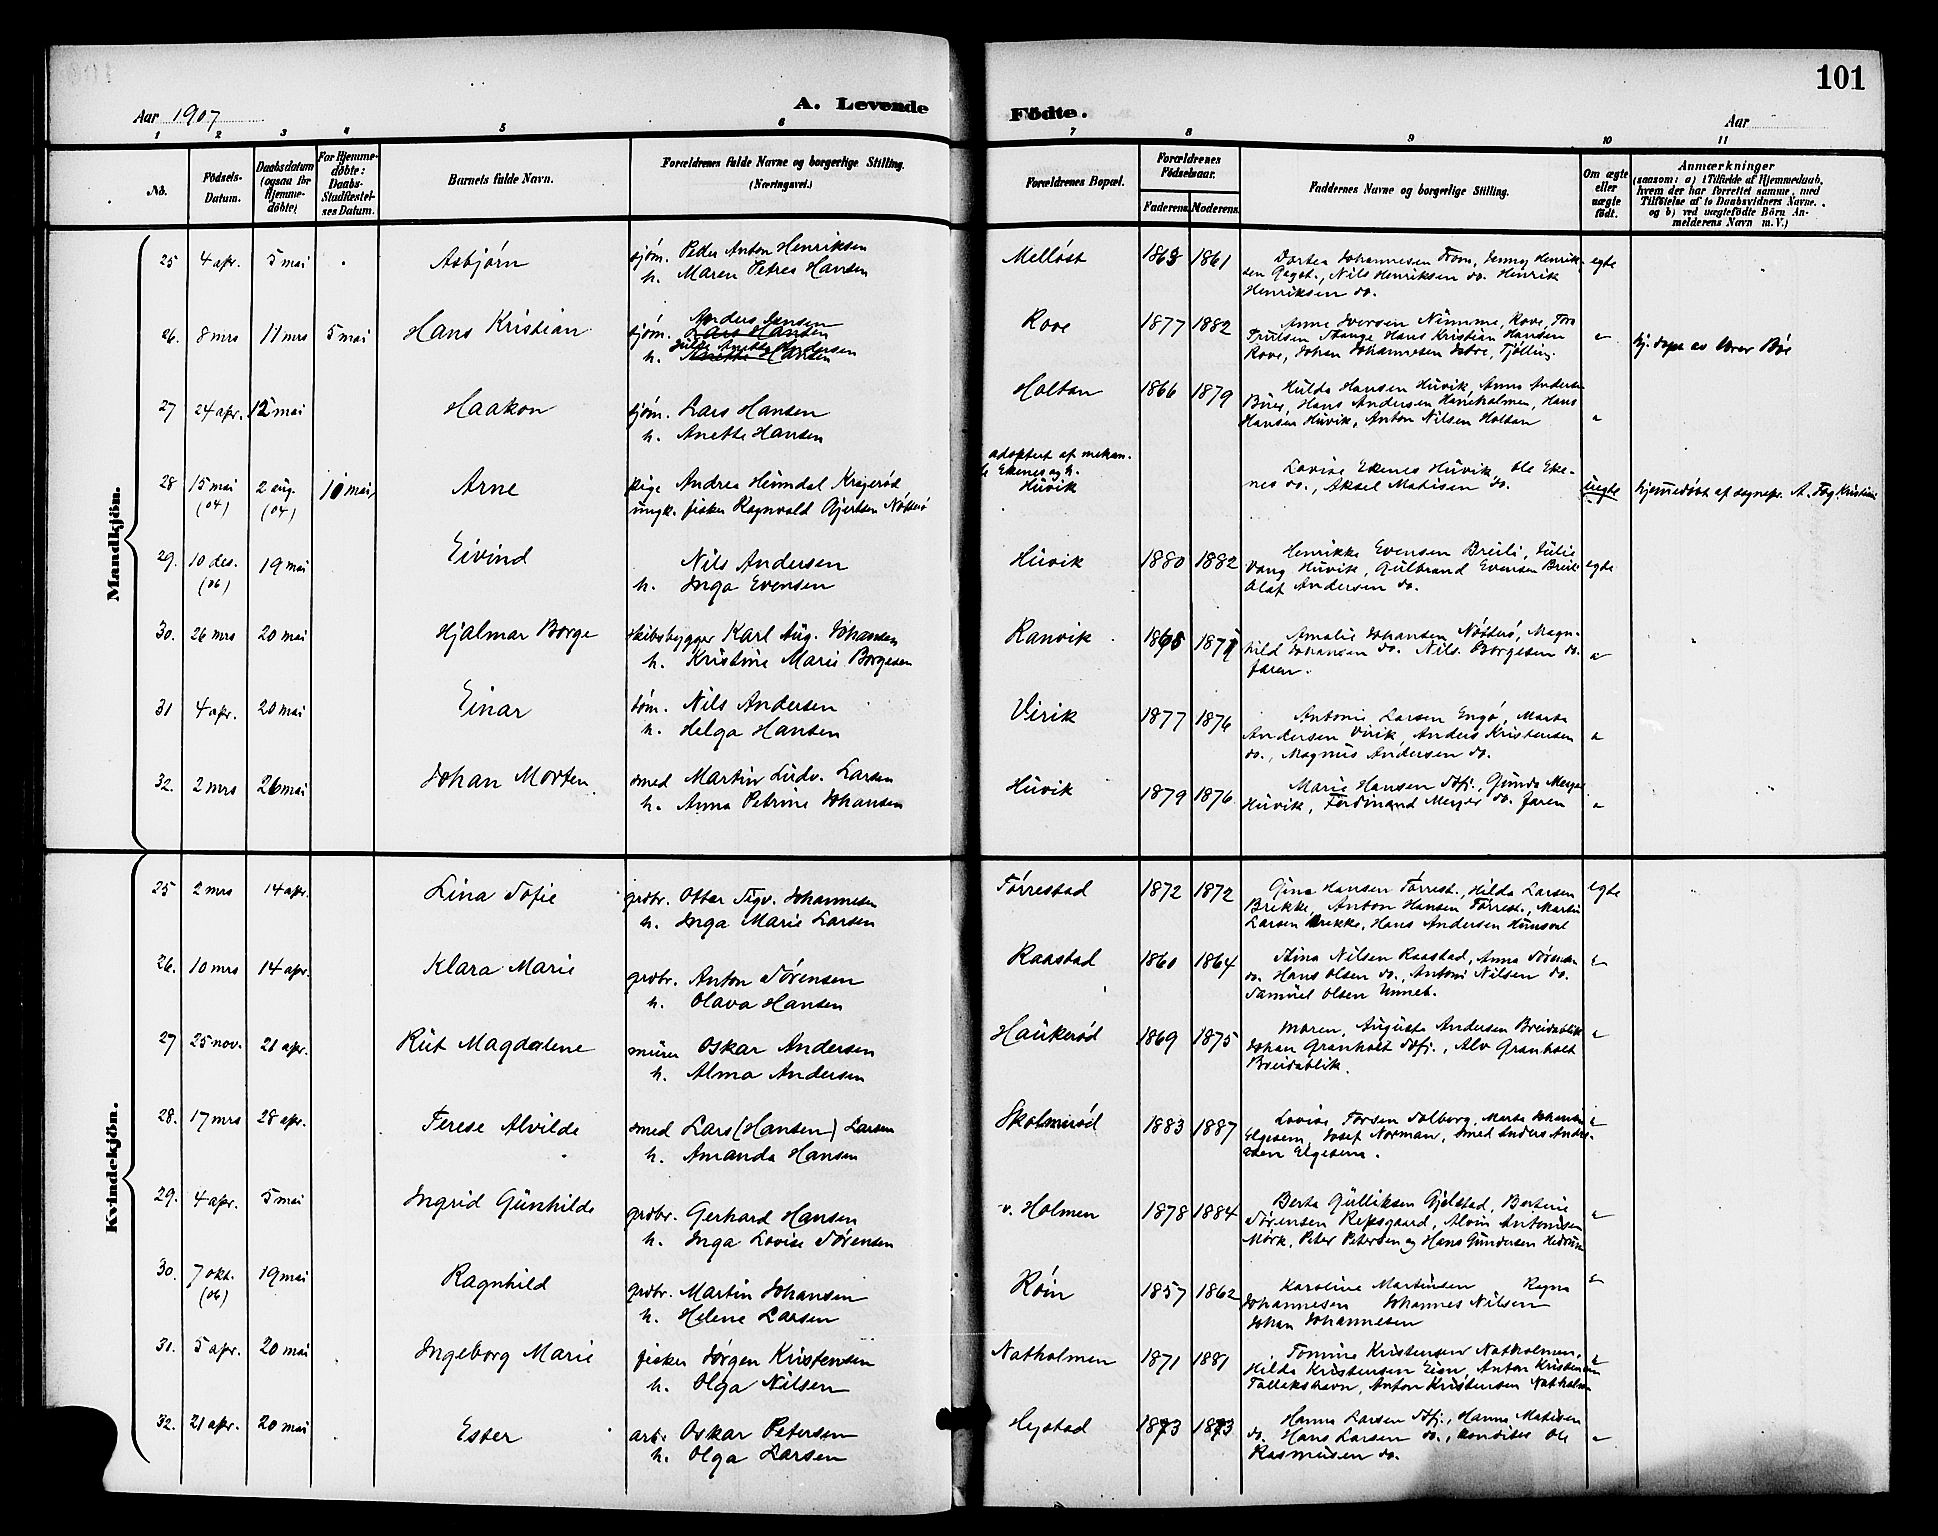 101
Aar 1907
A. Levende
Födte.
Aar
1 2 3 4 5 6 7 8 9 10 11
No.
Födsels-
Datum.
Daabsdatum
(ogsaa for
Hjemme-
döbte)
For Hjemme-
döbte:
Daabs-
Stadfæstel-
ses Datum.
Barnets fulde Navn.
Forældrenes fulde Navne og borgerlige Stilling.
(Næringsvei.)
Forældrenes Bopæl.
Forældrenes
Födselsaar.
Faderens.
Moderens.
Faddernes Navne og borgerlige Stilling.
Om ægte
eller
uægte
födt.
Anmærkninger
(saasom: a) i Tilfælde af Hjemmedaab,
hvem der har forrettet samme, med
Tilföielse af to Daabsvidners Navne.
og b) ved uægtefödte Börn An-
melderens Navn m. V.)
Mandkjön.
25 4 apr. 5 mai Asbjørn sjøm. Peder Anton Henriksen
h. Maren Petrea Hansen
Melløst 1863 1861 Dortea Johannesen Frøm, Jenny Henrik-
sen Gogst., Nils Henriksen do. Henrik
Henriksen do.
egte
26. 8 mrs 11 mrs 5 mai Hans Kristian Anders Jensen
sjøm. Lars Hansen
Hilda Anette Andersen
h. Anette Hansen
Rove 1877 1882 Anne Iversen Nimme, Rove,
Trulsen Stange Hans Kristian Hansen
Rove, Johan Johannesen Istre, Tjølling.
hj. døpt av Iver Bøe
27 24 apr. 12 mai Haakon sjøm. Lars Hansen
h. Anette Hansen
Holtan 1866 1879 Hulda Hansen Huvik, Anna Andersen
Buer, Hans Andersen Haneholmen, Hans
Hansen Huvik, Anton Nilsen Holtan
28 15 mai (04) 2 aug. (04) 10 mai Arne pige Andrea Heimdal Kragerød
ungk. fisker Ragnvald Gjertsen Nøtterø
adoptert af mekan-
Ekenes og h.
Huvik
Lovise Ekenes Huvik, Ole Eke-
nes do., Aksel Matisen do.
uegte
hjemmedøbt af sognepr. A. Fog Kristiania
29. 10 des. (06) 19 mai Eivind Nils Andersen
h. Inga Evensen
Huvik 1880 1882 Henrikke Evensen Breili, Julie
Vang Huvik, Gulbrand Evensen Breili
Olaf Andersen do.
egte
30. 26 mrs 20 mai Hjalmar Borge skibsbygger Karl Aug. Johansen
h. Kristine Marie Borgesen
Ranvik 1865 1871 Amalie Johansen Nøtterø, Magn-
hild Johansen do. Nils Borgesen do.
faren.
31 4 apr. 20 mai Einar tøm. Nils Andersen
h. Helga Hansen
Virik 1877 1876 Antonie Larsen Engø, Marta
Andersen Virik, Anders Kristensen
do., Magnus Andersen do.
32. 2 mrs 26 mai Johan Morten smed Martin Ludv. Larsen
h. Anna Petrine Johansen
Huvik 1879 1876 Marie Hansen Sdfj., Gunda Meyer
Huvik, Ferdinand Meyer do. faren
Kvindekjön.
25 2 mrs 14 apr. Lina Sofie grdbr. Ottar Sigv. Johannesen
h. Inga Marie Larsen
Førrestad 1872 1872 Gina Hansen Førrest., Hilda Larsen
Brekke, Anton Hansen Førrest., Martin
Larsen Brekke, Hans Andersen Hunsval
egte
26. 10 mrs 14 apr. Klara Marie grdbr. Anton Sørensen
h. Olava Hansen
Raastad 1860 1864 Stina Nilsen Raastad, Anna Sørensen
do. Hans Olsen do. Antoni Nilsen do.
Samuel Olsen Unneb.
27 25 nov. 21 apr. Rut Magdalene murer Oskar Andersen
h. Alma Andersen
Haukerød 1869 1875 Maren, Augusta Andersen Breidablik
Johan Granholt Sdfj., Alv Granholt
Breidablik.
28. 17 mrs 28 apr. Terese Alvilde smed Lars (Hansen) Larsen
h. Amanda Hansen
Skolmerød 1883 1887 Lovise Torsen Solberg, Marta Johansen
Elgesem, Josef Norman, smed Anders Ander-
sen Elgesem.
29. 4 apr. 5 mai Ingrid Gunhilde grdbr. Gerhard Hansen
h. Inga Lovise Sørensen
v. Holmen 1878 1884 Berta Gulliksen Gjelstad, Bertine
Sørensen Repsgaard, Alvin Antonisen
Mørk, Peter Petersen og Hans Gundersen Hedrum
30. 7 okt. (06) 19 mai Ragnhild grdbr. Martin Johansen
h. Helene Larsen
Røin 1857 1862 Karoline Martinsen Ragna
Johannesen Johannes Nilsen
Johan Johannesen
31. 5 apr. 20 mai Ingeborg Marie fisker Jørgen Kristensen
h. Olga Nilsen
Natholmen 1871 1881 Tomine Kristensen Natholmen,
Hilda Kristensen Eian, Anton Kristensen
Tallakshavn, Anton Kristensen Natholmen
32. 21 apr. 20 mai Ester arb. Oskar Petersen
h. Olga Larsen
Hystad 1873 1873 Hanna Larsen Sdfj., Hanna Matisen
do. Hans Larsen do., konditor Ole
Rasmussen do.